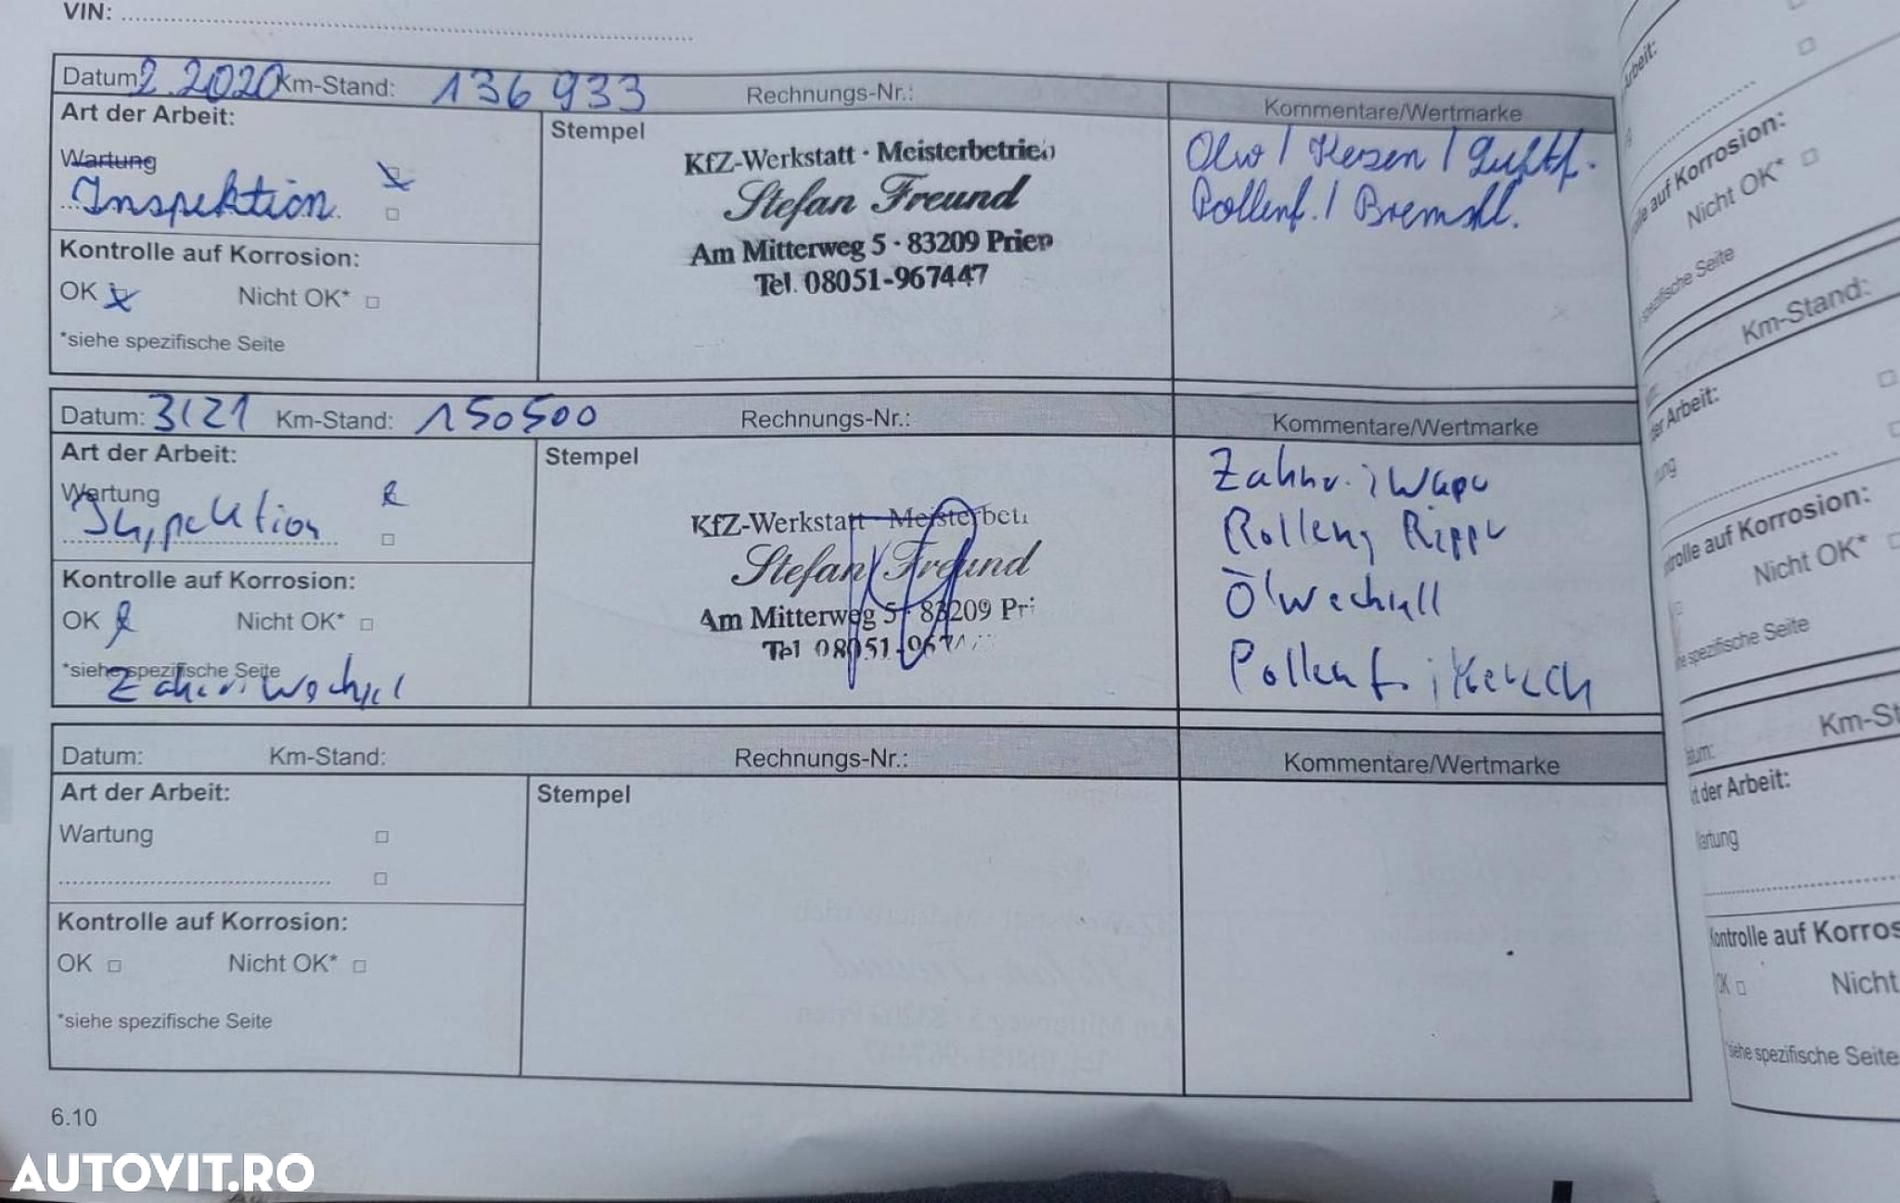 VIN:
Datum 2.2020 Km-Stand: 136 933 Rechnungs-Nr.: Kommentare/Wertmarke
Art der Arbeit:
Wartung
Inspektion
Kontrolle auf Korrosion:
OK Nicht OK* □
*siehe spezifische Seite
Stempel
KfZ-Werkstatt · Meisterbetrieb
Stefan Freund
Am Mitterweg 5 · 83209 Prien
Tel. 08051-967447
Ölw / Kerzen / Luftf.
Pollenf. / Bremsfl.
Datum: 3/21 Km-Stand: 150500 Rechnungs-Nr.: Kommentare/Wertmarke
Art der Arbeit:
Wartung
Inspektion
Kontrolle auf Korrosion:
OK Nicht OK* □
*siehe spezifische Seite
Zahnri Wechsel
Stempel
KfZ-Werkstatt Meisterbet
Stefan Freund
Am Mitterweg 5 · 83209 Pri
Tel 08051-967
Zahnr. i Wapu
Rollen, Rippr
Ölwechsel
Pollenf. i
Datum: Km-Stand: Rechnungs-Nr.: Kommentare/Wertmarke
Art der Arbeit:
Wartung □
□
Kontrolle auf Korrosion:
OK □ Nicht OK* □
*siehe spezifische Seite
Stempel
6.10
Arbeit:
auf Korrosion:
Nicht OK* □
spezifische Seite
Km-Stand:
der Arbeit:
auf Korrosion:
Nicht OK*
spezifische Seite
Km-St
der Arbeit:
Wartung
Kontrolle auf Korros
OK □ Nicht
*siehe spezifische Seite
AUTOVIT.RO